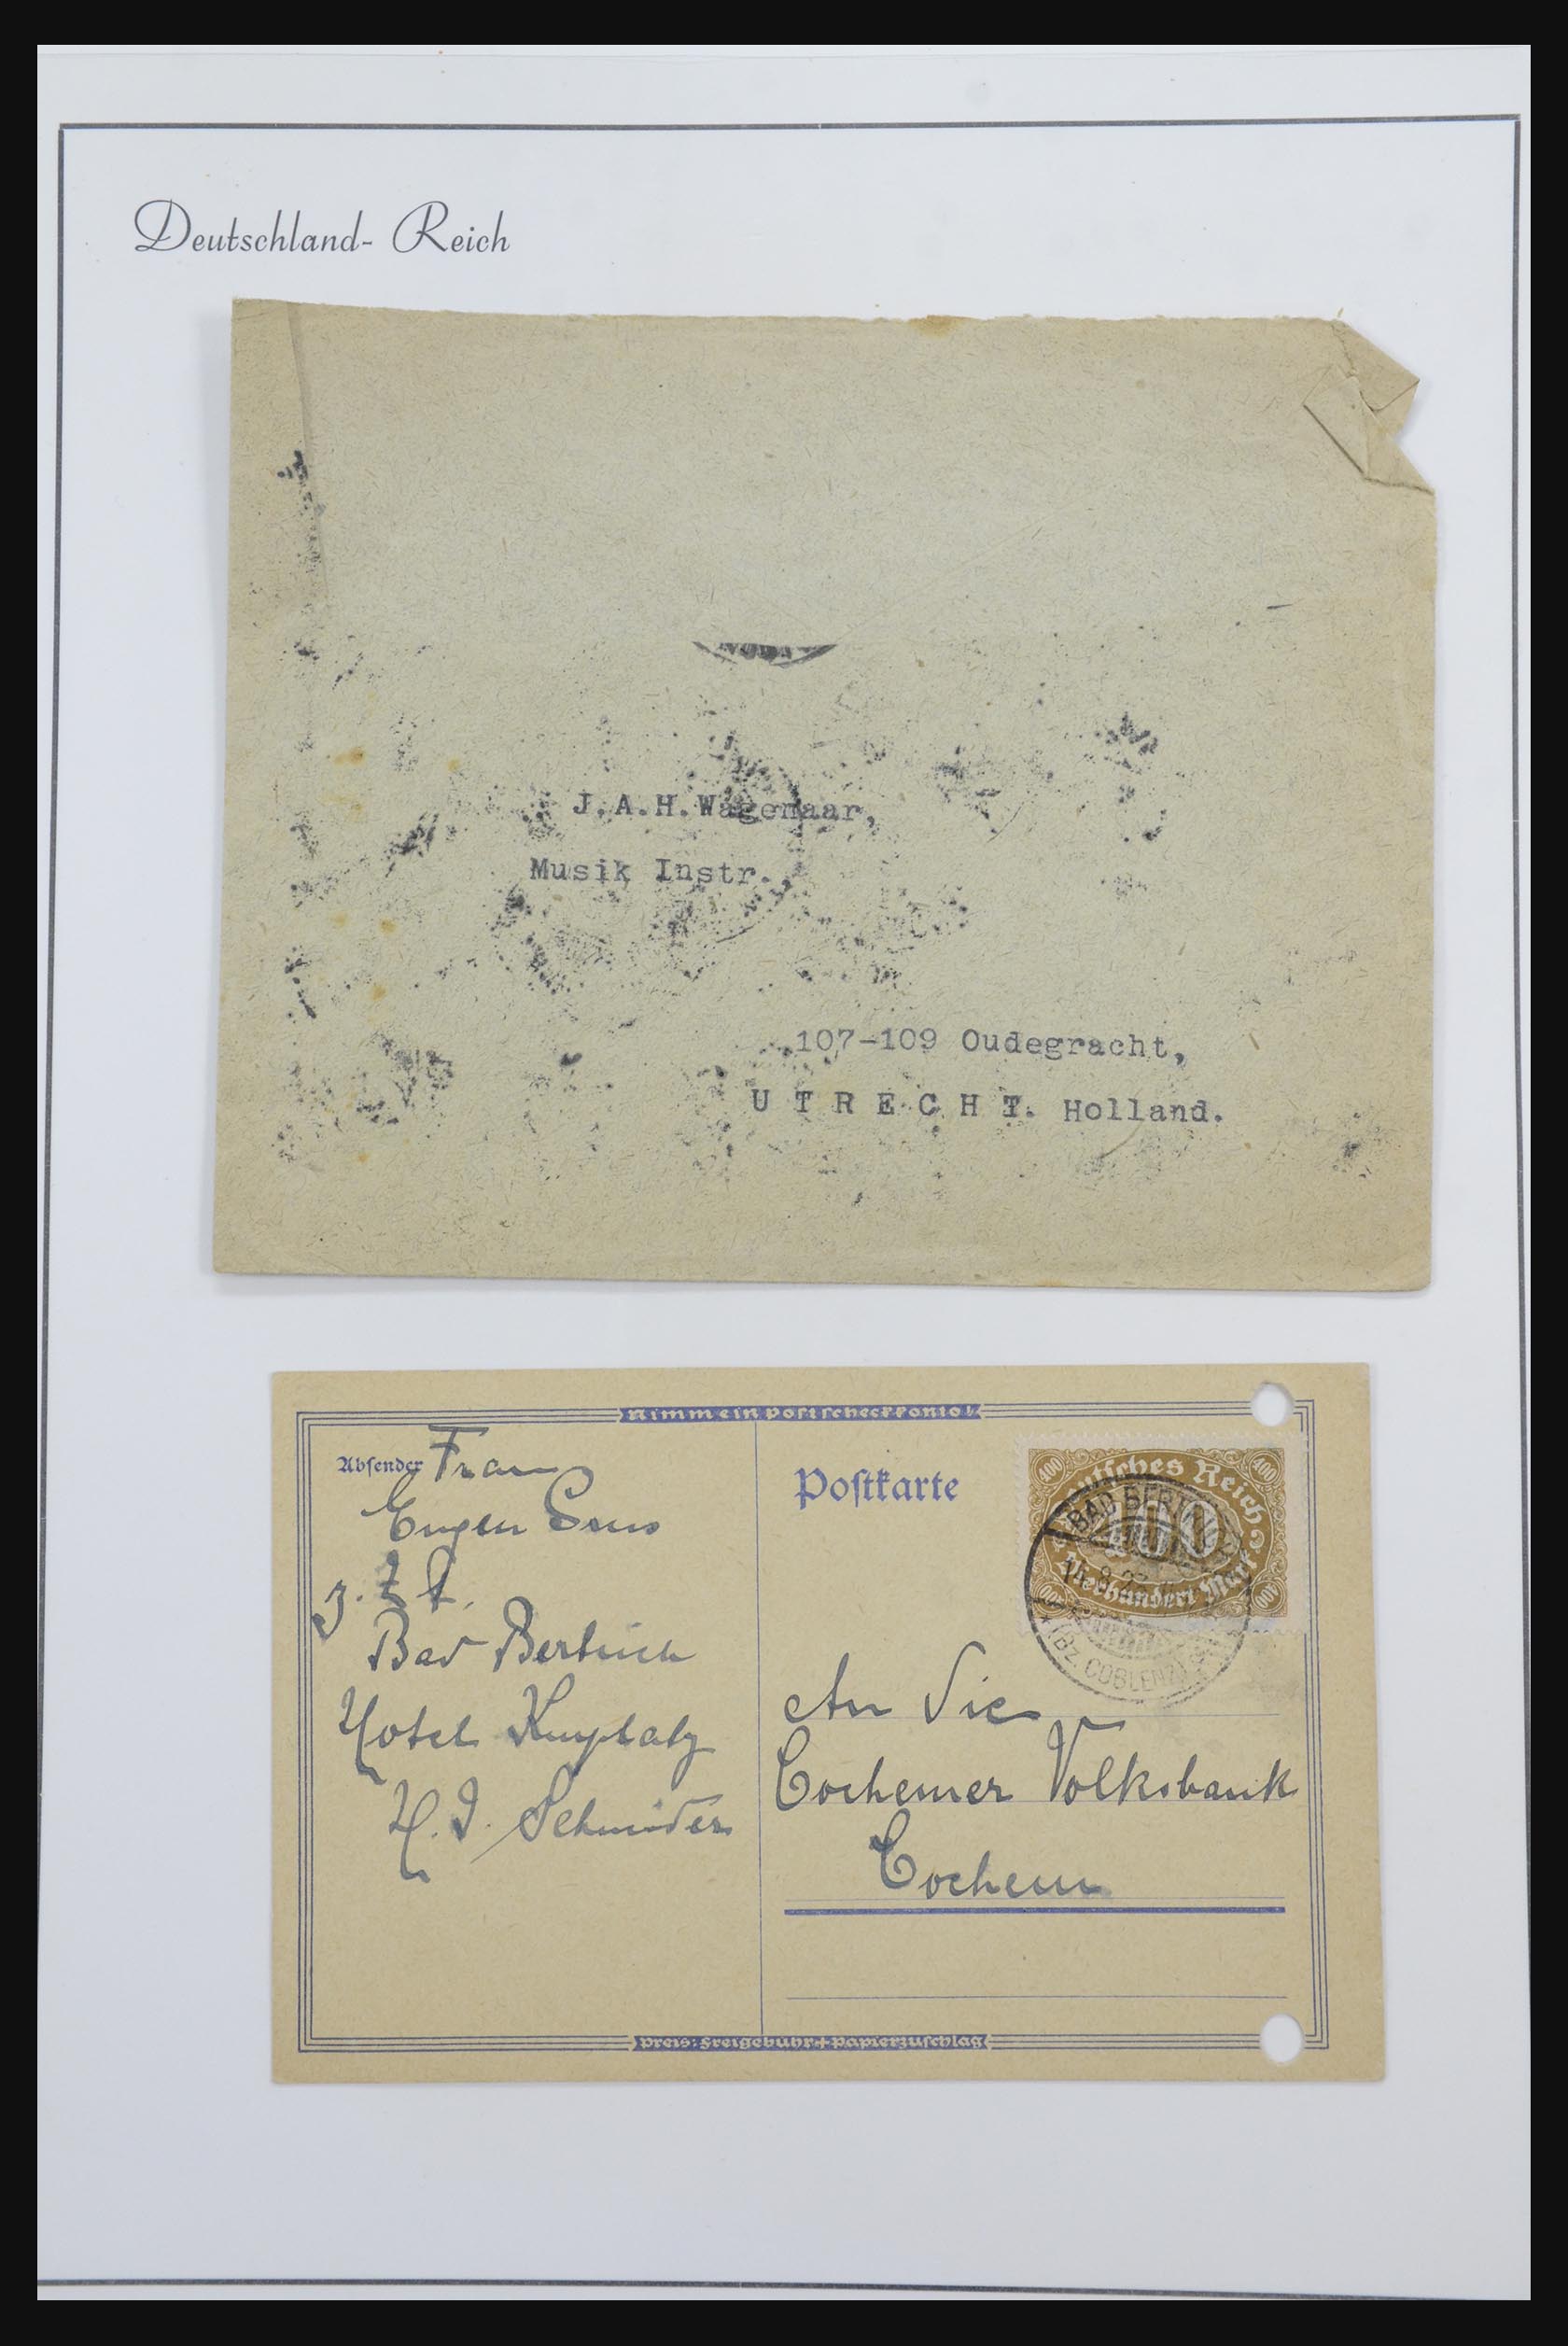 Deutschland- Reich
J.A.H.Wagenaar,
Musik Instr.,
107-109 Oudegracht,
U T R E C H T. Holland.
Nimm ein Postscheckkonto!
Absender Frau
Eugen
z. Zt.
Bad Bertrich
Hotel Kurplatz
H. J. Schneider
Postkarte
400 400
Deutsches Reich
400
Vierhundert Mark
400 400
BAD BERTRICH
14.8.23
(BZ. COBLENZ)
An die
Cochemer Volksbank
Cochem
Preis: Freigebühr + Papierzuschlag